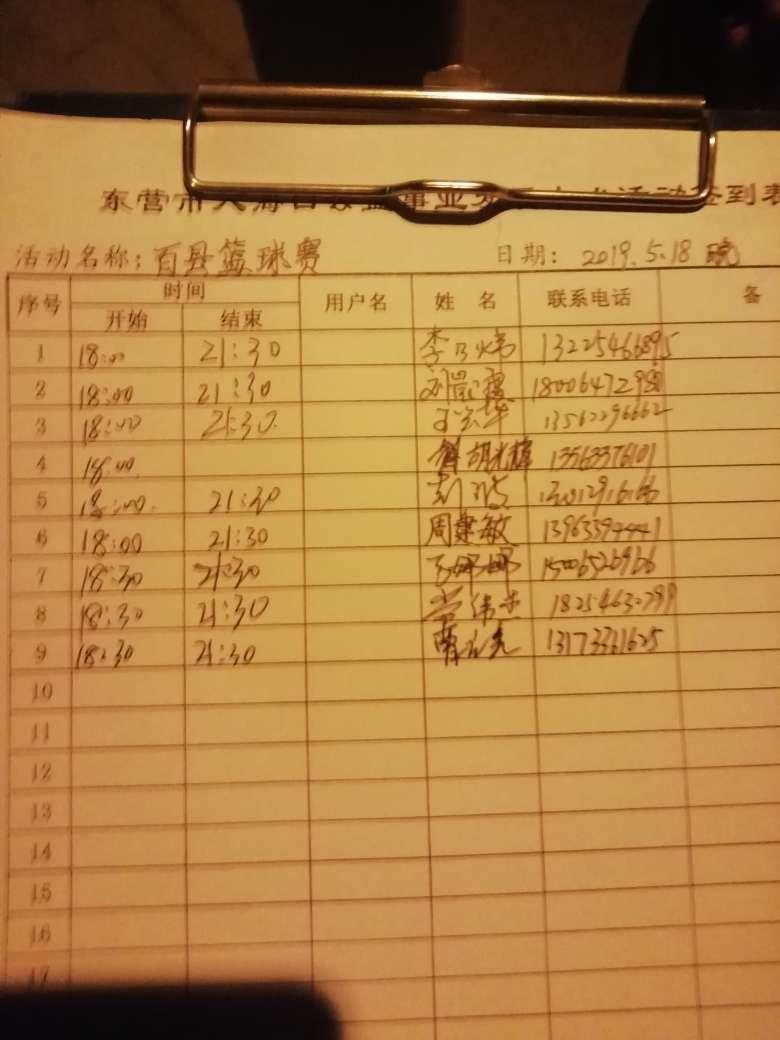 东营市大海 公益事业 活动签到表
活动名称：百县篮球赛 日期：2019.5.18 晚
序号 时间 用户名 姓 名 联系电话 备
开始 结束
1 18:00 21:30 李 炜 13225466895
2 18:00 21:30 18006472980
3 18:00 21:30 13562296662
4 18:00 胡光辉 13563376101
5 18:00 21:30
6 18:00 21:30 周肇敏 13963394441
7 18:30 21:30 娜娜 15006526966
8 18:30 21:30 伟 1825463
9 18:30 21:30 13173361625
10
11
12
13
14
15
16
17